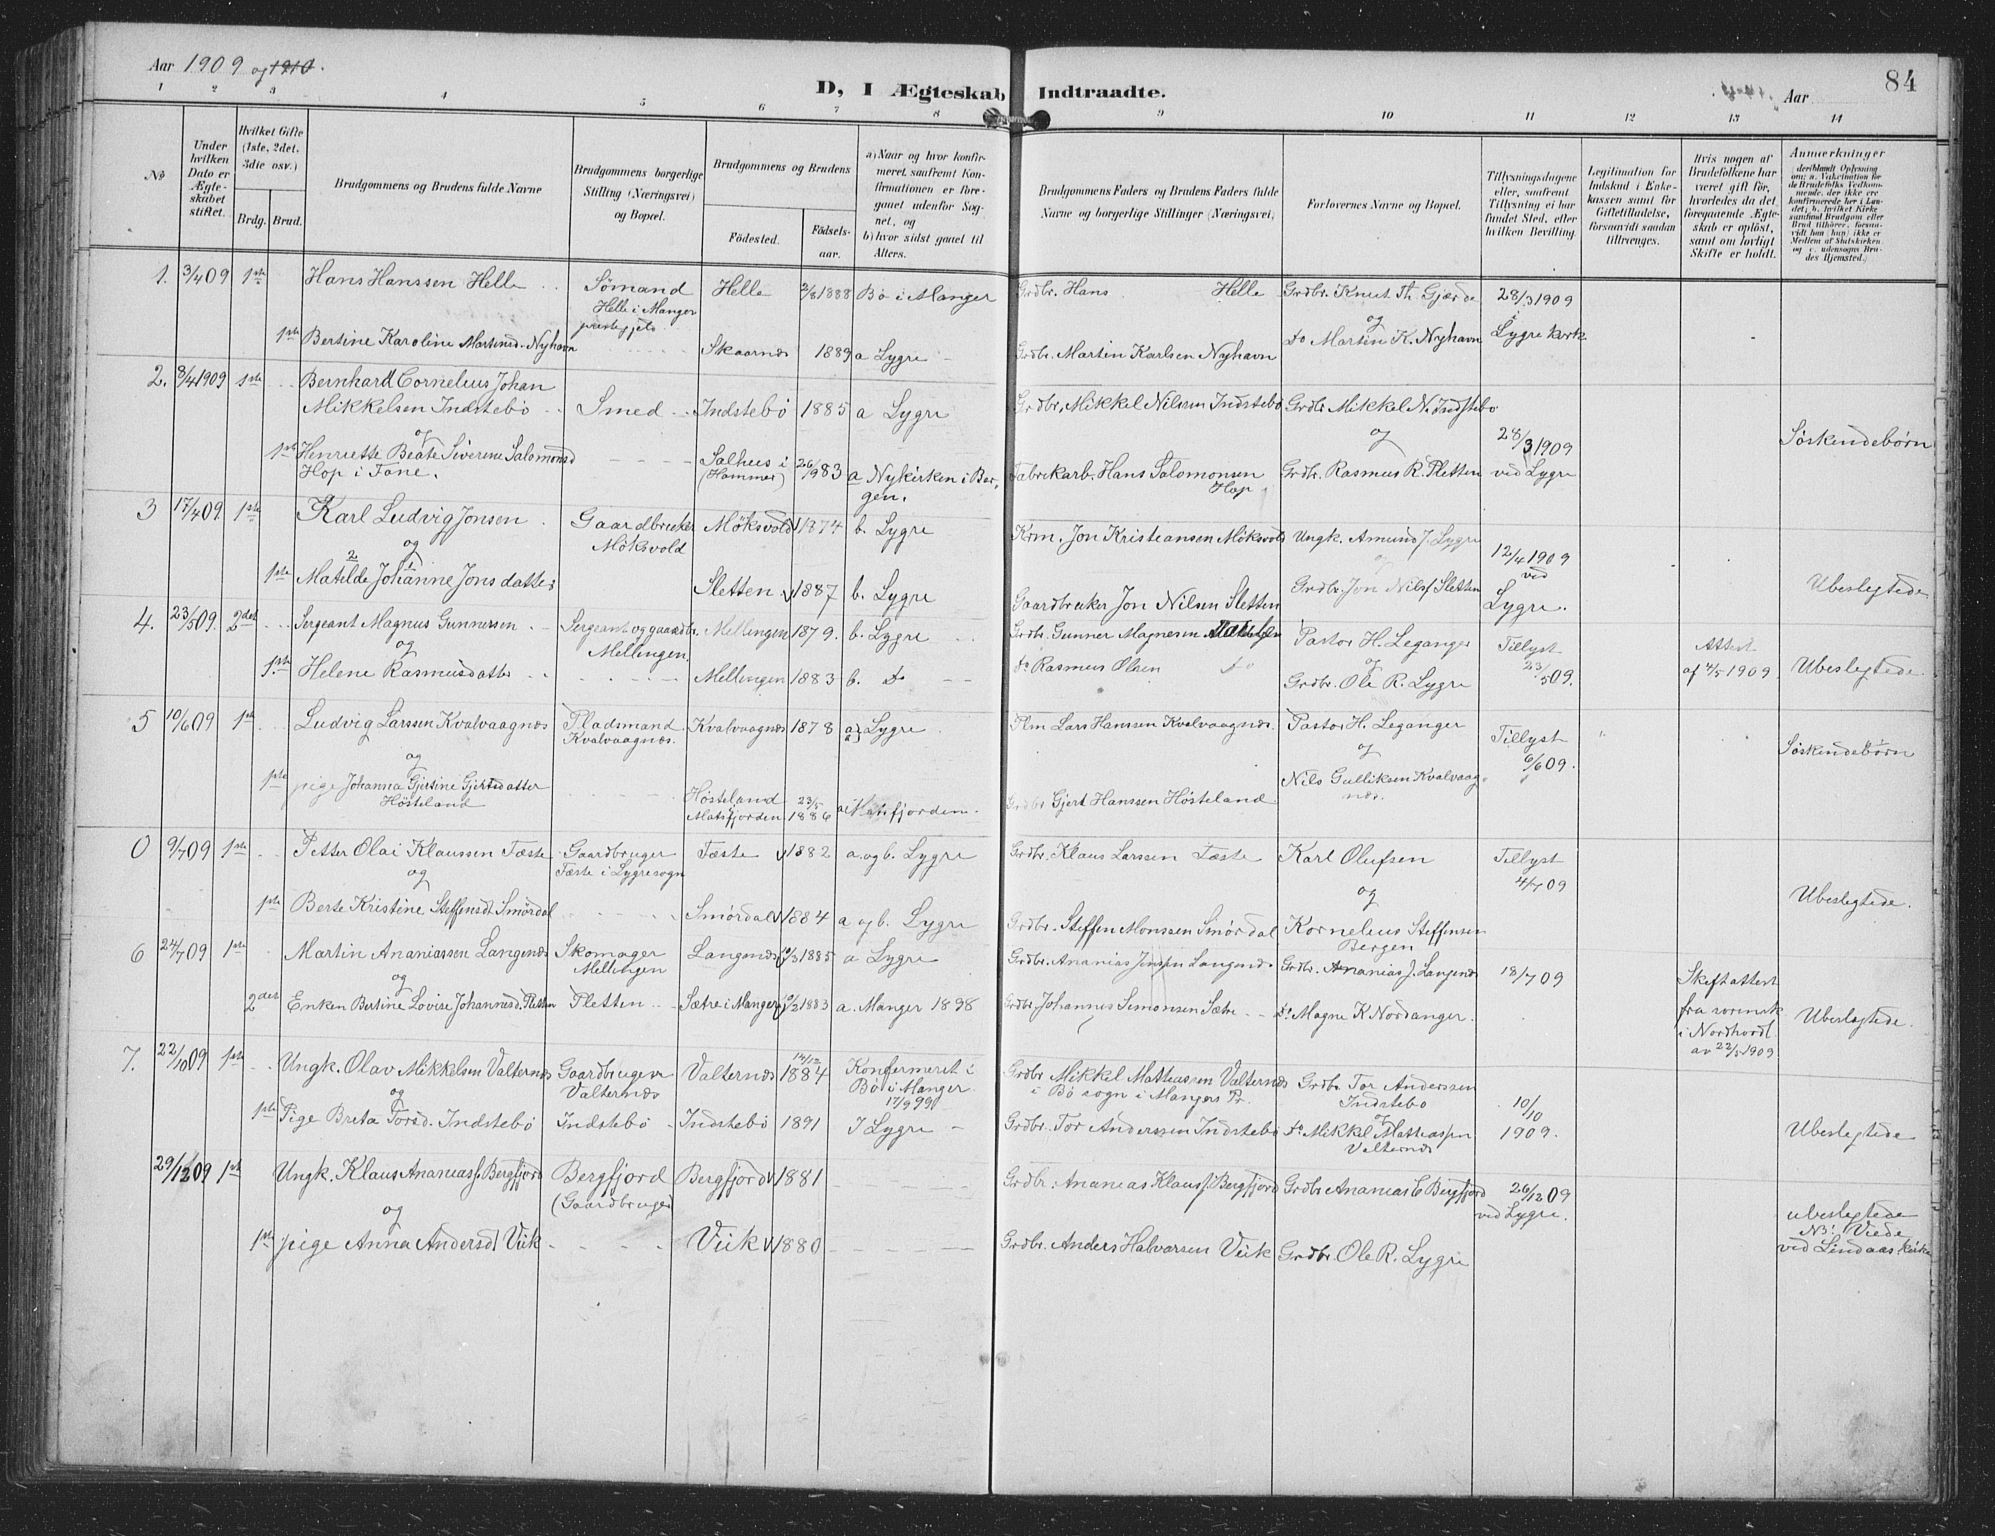 Aar 1909 og 1910.
D, I Ægteskab Indtraadte.
Aar
84
1 2 3 4 5 6 7 8 9 10 11 12 13 14
No
Under hvilken Dato er Ægteskabet stiftet.
Hvilket Gifte (1ste, 2det, 3die osv.)
Brdg. Brud.
Brudgommens og Brudens fulde Navne
Brudgommens borgerlige Stilling (Næringsvei) og Bopæl.
Brudgommens og Brudens
Fødested.
Fødselsaar.
a) Naar og hvor konfirmeret, saafremt Konfirmationen er foregaaet udenfor Sognet, og
b) hvor sidst gaaet til Alters.
Brudgommens Faders og Brudens Faders fulde Navne og borgerlige Stillinger (Næringsvei)
Forlovernes Navne og Bopæl.
Tillysningsdagene eller, saafremt Tillysning ei har fundet Sted, efter hvilken Bevilling.
Legitimation for Indskud i Enkekassen samt for Giftetilladelse, forsaavidt saadan tiltrænges.
Hvis nogen af Brudefolkene har været gift før, hvorledes da det foregaaende Ægteskab er opløst, samt om lovligt Skifte er holdt.
Anmerkninger
1. 3/4 09 1ste Hans Hanssen Helle Sømand Helle i Manger prestegjeld. Helle 2/8 1888 Bø i Manger Grdbr. Hans Helle Grdbr. Knut Th. Gjærde 28/3 1909
og
1ste Bertine Karoline Martinsd. Nyhavn Skaarnes 1889 a Lygre Grdbr. Martin Karlsen Nyhavn do Martin K. Nyhavn Lygre kirk
2. 8/4 1909 1ste Bernhard Cornelius Johan
Mikkelsen Indstebø Smed Indstebø 1885 a Lygre Grdbr. Mikkel Nilssen Indstebø Grdbr Mikkel N. Indstebø
og og 28/3 1909 Søskendebørn
1ste Henriette Beate Severine Salomonsd Salhus i 26/9 83 a Nykirken i Ber- Fabrikarb. Hans Salomonsen Grdbr. Rasmus R. Sletten ved Lygre
Hop i Fane. (Hammer) gen. Hop.
3 17/4 09 1ste Karl Ludvig Jonsen Gaardbruker Møksvold 1874 b. Lygre Krm. Jon Kristiansen Møksvold Ungk. Amund J. Lygre 12/4 1909
og Møksvold og ved
2 1
1ste Matilde Johanne Jonsdatter Sletten 1887 b. Lygre Gaardbruker Jon Nilsen Sletten Grdbr. Jon Nilss Sletten Lygre. Ubeslegtede
4. 23/5 09. 2det Sergeant Magnus Gunnersen Sergeant og gaardbr. Mellingen 1879. b. Lygre Grdbr. Gunner Magnesen Pastor H. Leganger Tillyst Attest
og Mellingen. og 23/5 09. af 4/5 1909 Ubeslegtede
1ste Helene Rasmusdatter Mellingen 1883 b. do do Rasmus Olsen do Grdbr. Ole R. Lygre
5 10/6 09 1ste Ludvig Larssen Kvalvaagnes Pladsmand Kvalvaagnes 1878 a) Lygre Plm Lars Hanssen Kvalvaagnes Pastor H. Leganger Tillyst
og Kvalvaagnes. og 6/6 09. Søskendebørn
1ste pige Johanna Gjertine Gjertsdatter Høsteland 23/5 a Matsfjorden Grdbr Gjert Hanssen Høsteland. Nils Gulliksen Kvalvaag
Høsteland Matsfjorden 1886 nes.
0 9/7 09 1ste Petter Olai Klaussen Fæste Gaardbruger Fæste 1882 a. og b. Lygre Grdbr. Klaus Larssen Fæste Karl Olufsen Tillyst
og Fæste i Lygresogn og 4/7 09
1ste Berte Kristine Steffensdt Smørdal Smørdal 1884 a og b. Lygre Grdbr. Steffen Monssen Smørdal Kornelius Steffensen Bergen Ubeslegtede.
6 24/7 09 1ste Martin Ananiassen Langenes Skomager Mellingen Langenes 10/3 1885 a Lygre Grdbr. Ananias Jenssen Langenes Grdbr. Ananias J. Langenes 18/7 09 Skiftattest
og
2det Enken Bertine Lovise Johannesd. Sletten Sletten Sætre i Manger 10/2 1883 a. Manger 1898 Grdbr Johannes Simonsen Sætre do Magne K Nordanger. fra sorensk i Nordhordl av 22/5 1909 Ubeslegtede.
7. 22/10 09 1ste Ungk. Olav Mikkelsen Valternes Gaardbruger Valternes Valternes 14/12 1884 Konfermeret i Bø i Manger 17/9 99 Grdbr Mikkel Mathiassen Valternes i Bø sogn i Mangers Pr. Grdbr. Tor Anderssen Indstebo 10/10 1909.
og og
1ste Pige Breta Torsd. Indstebø Indstebø Indstebø 1891 I Lygre Grdbr. Tor Anderssen Indstebø do Mikkel Mathiassen Valternes Ubeslegtede
29/12 09 1st Ungk. Klaus Ananiass. Bergfjord Bergfjord (Gaardbruger Bergfjord 1881 Grdbr. Ananias Klauss. Bergfjord Grdbr Ananias C Bergfjord 26/12 09 ved Lygre.
og ubeslegtede
1ste pige Anna Andersd Viik Viik 1880 Grdbr. Anders Halvorsen Viik Grdbr. Ole R. Lygre N3! Viede ved Lindaas kirke